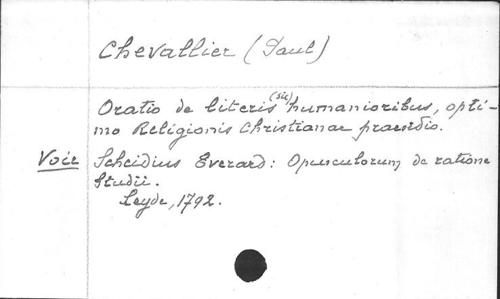 Chevallier (Paul)
Oratio de literis (sic) humanioribus, opti-
mo Religionis Christianae praesidio.
Voir Scheidius Everard: Opusculorum de ratione
Studii.
Leyde, 1792.